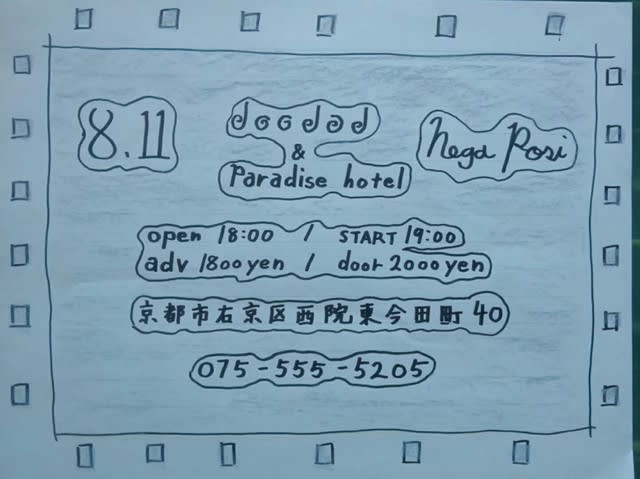 8.11
doodad
&
Paradise hotel
Nega Posi
open 18:00 / START 19:00
adv 1800yen / door 2000yen
京都市右京区西院東今田町40
075-555-5205